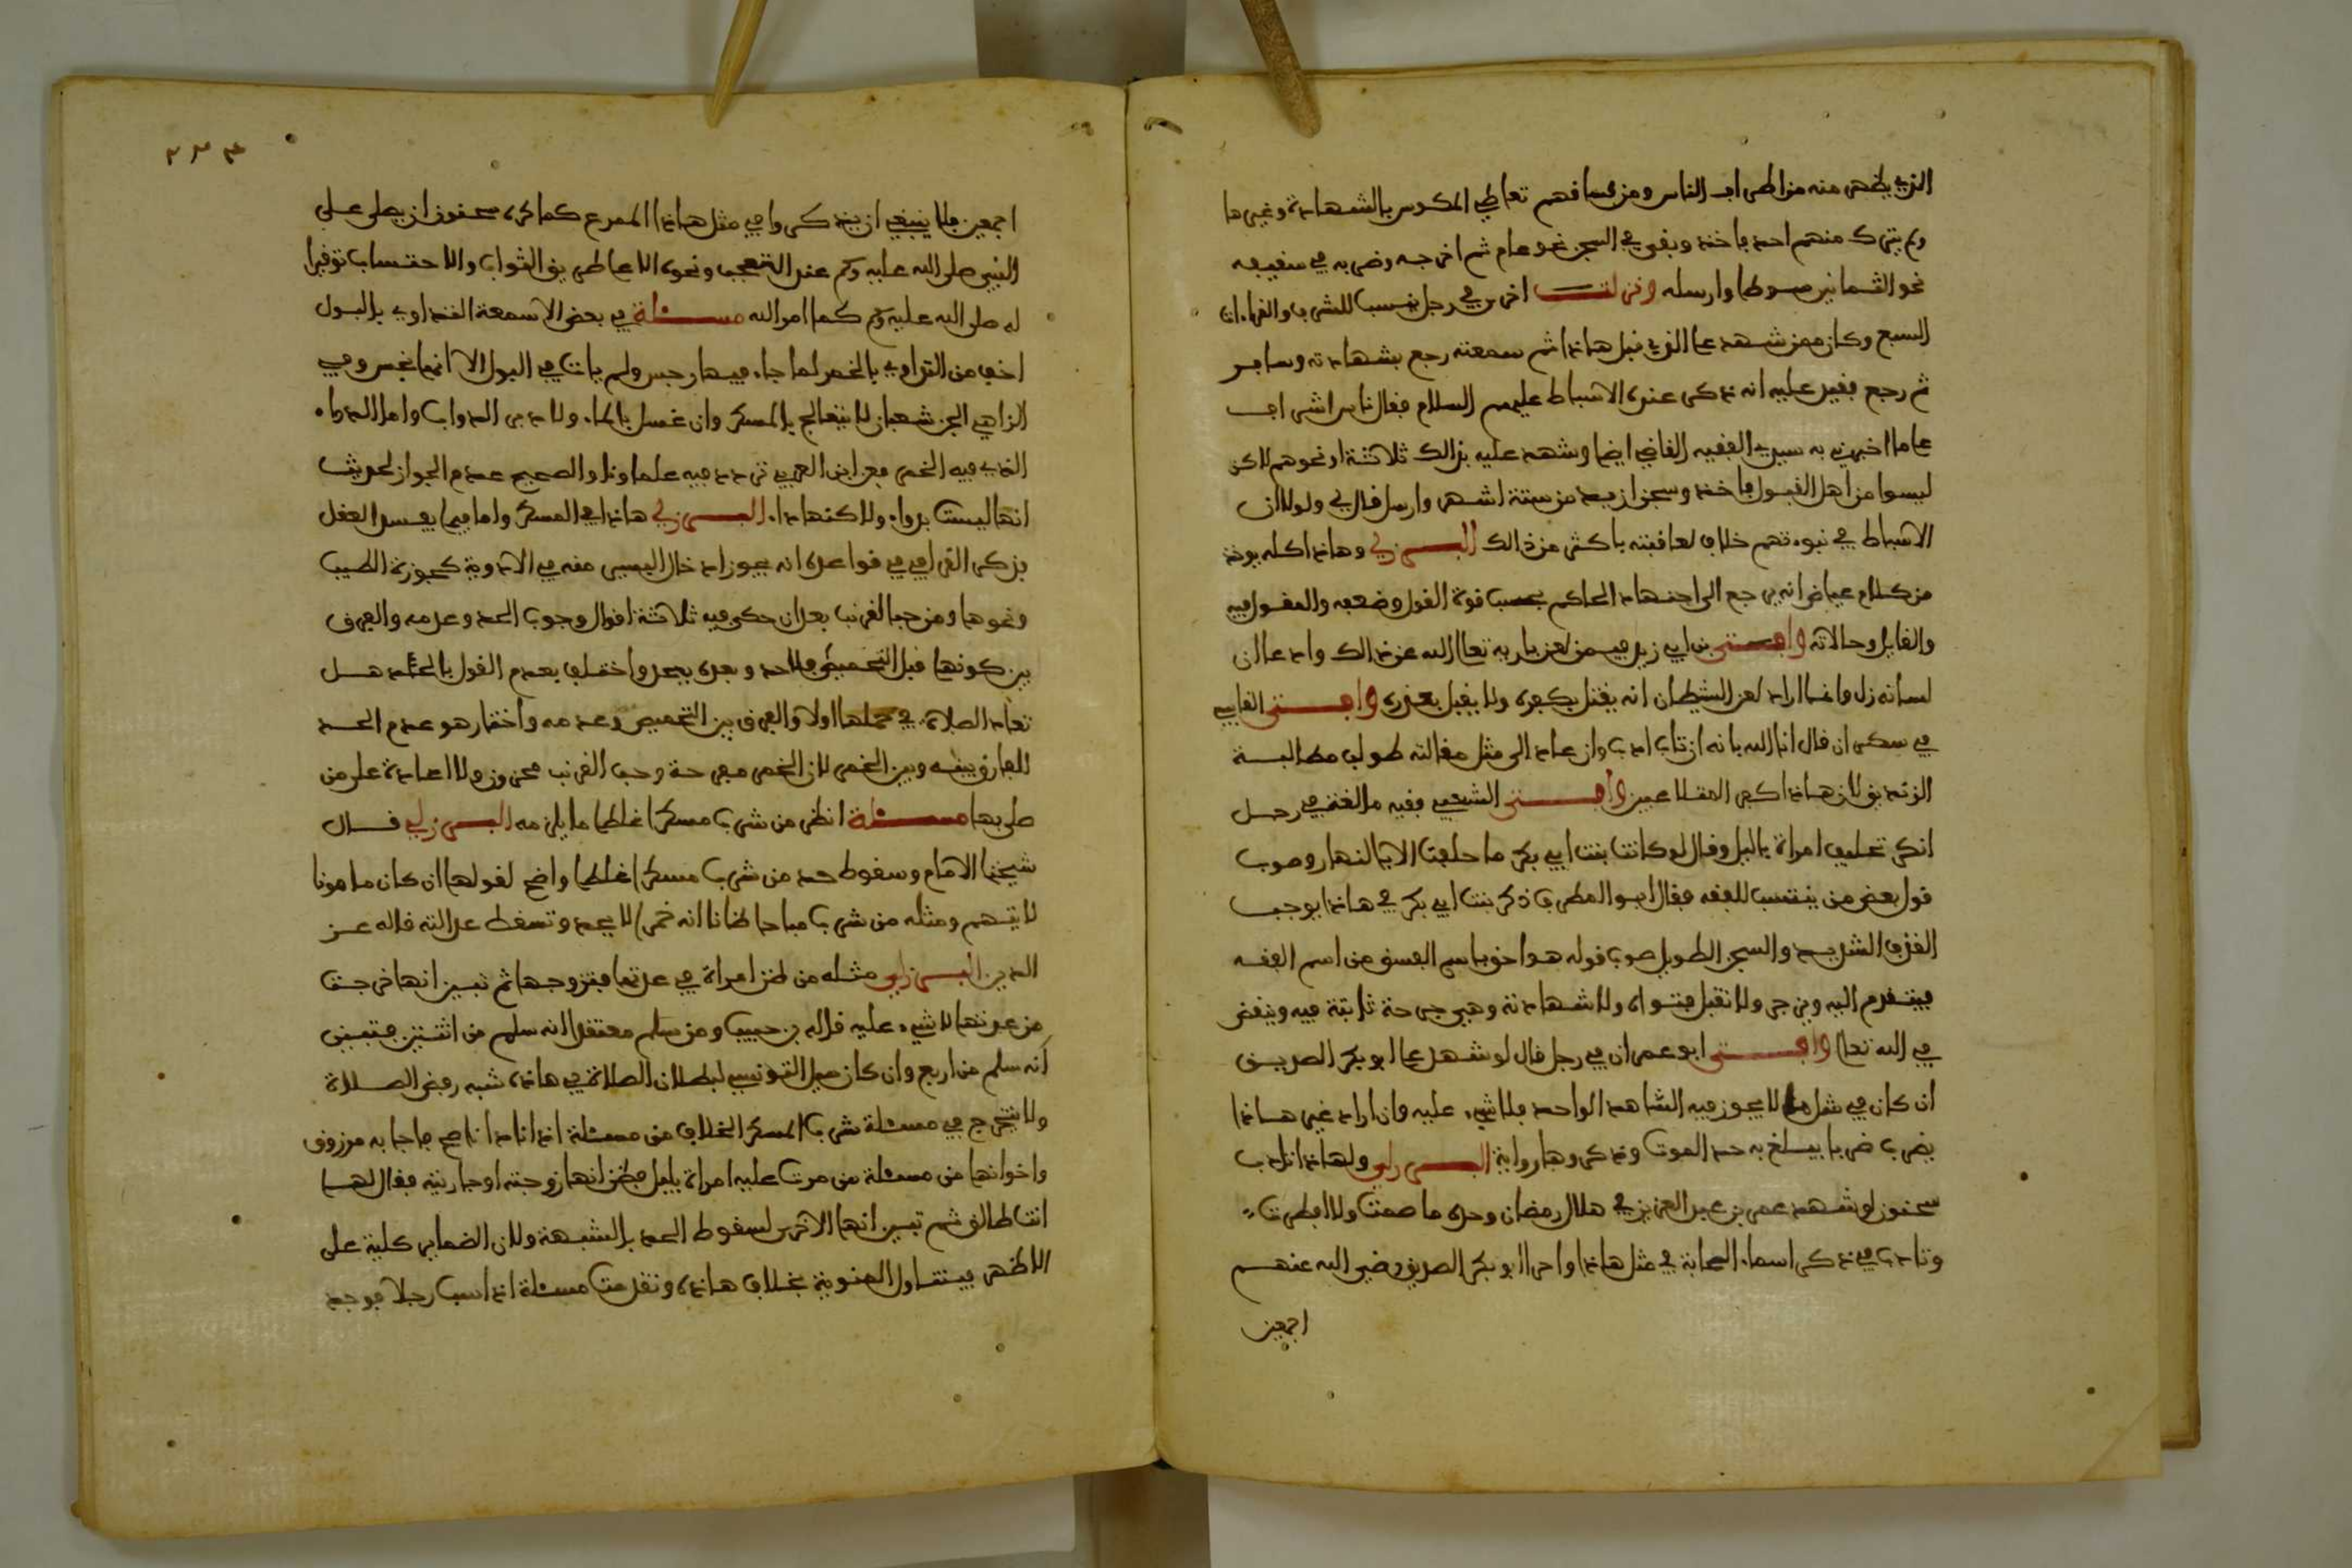 الذي يظهر منه من اطراف الناس ومن فساقهم تعاطي المكوس بالشهادة وغيرها
ولم يترك منهم احد فاخذ وبقي في السجن نحو عام ثم اخرجه وضربه في سقيفه
نحو الثمانين سوطا وارسله ونزلت اخرى في رجل ينسب للشرف والقراءات
السبع وكان ممن شهد على الذي قبل هاذا ثم سمعته رجع بشهادته وسافر
ثم رجع فقيد عليه انه ذكر عنده الاسباط عليهم السلام فقال ناس اشراف
على ما اخبرني به سيدي الفقيه القاضي ايضا وشهد عليه بذالك ثلاثة او نحوهم لاكن
ليسوا من اهل القبول فاخذ وسجن ازيد من ستة اشهر وارسل قال لي ولولا ان
الاسباط في نبوءتهم خلاف لعاقبته باكثر من ذالك البرزلي وهاذا كله يوخذ
من كلام عياض انه يرجع الى اجتهاد الحاكم بحسب قوة القول وضعفه والمقول فيه
والقايل وحالاته وافتى بن ابي زيد فيمن لعن باريه تعالى الله عن ذالك وادعا ان
لسانه زل وانما اراد لعن الشيطان انه يقتل بكفره ولا يقبل بعذره وافتى القابسي
في سكران قال انا الله بانه ان تاب ادب وان عاد الى مثل مقالته طولب مطالبة
الزنديق لان هاذا كفر المتلاعبين وافتى الشعبي فقيه مالقة في رجل
انكر تحليف امراة باليل وقال لو كانت بنت ابي بكر ما حلفت الا بالنهار وصوب
قول بعض من ينتسب للفقه فقال ابو المطرف ذكر بنت ابي بكر في هاذا يوجب
الضرب الشديد والسجن الطويل صوب قوله هو اخو باسم الفسق من اسم الفقه
فيتقدم اليه ويزجر ولا تقبل فتواه ولا شهادته وهي جرحة ثابتة فيه ويبغض
في الله تعالى وافتى ابو عمران في رجل قال لو شهد على ابو بكر الصديق
ان كان في مثل ما لا يجوز فيه الشاهد الواحد فلا شيء عليه وان اراد غير هاذا
يضرب ضربا يبلغ به حد الموت وذكروها رواية البرزلي ولهاذا ادب
سحنون لو شهد عمر بن عبد العزيز في هلال رمضان وحده ما صمت ولا افطرت
وتادب في ذكر اسماء الصحابة في مثل هاذا واحرى ابو بكر الصديق رضي الله عنهم
اجمعين
٢٢٣
اجمعين فلا ينبغي ان يذكروا في مثل هاذا المفزع كما كره سحنون ان يصلى على
النبي صلى الله عليه وسلم عند التعجب ونحوه الا على طريق الثواب والاحتساب توقيرا
له صلى الله عليه وسلم كما امر الله مسئلة في بعض الاسمعة التداوي بالبول
اخف من التداوي بالخمر لما جاء فيها رجس ولم يات في البول الا انما نجس وفي
الزاهي لابن شعبان لا يتعالج بالمسكر وان غسل بالماء ولا دبر الدواب واما الدواء
الذي فيه الخمر فعن ابن العربي تردد فيه علماونا والصحيح عدم الجواز لحديث
انها ليست بدواء ولاكنها داء البرزلي هاذا في المسكر واما فيما يفسد العقل
فذكر القرافي في قواعده انه يجوز ادخال اليسير منه في الادوية كجوزة الطيب
ونحوها ومن حب القرنب بعد ان حكى فيه ثلاثة اقوال وجوب الحد وعدمه والفرق
بين كونها قبل التحميص فلا حد وبعده يحد واختلف بعدم القول بالحد هل
تعاد الصلاة في حملها اولا والفرق بين التحميص وعدمه واختار هو عدم الحد
للفارق بينه وبين الخمر لان الخمر مفرحة وحب القرنب محزون ولا اعادة على من
صلى بها مسئلة انظر من شرب مسكرا غلطا ما يلزمه البرزلي قال
شيخنا الامام وسقوط حد من شرب مسكرا غلطا واضح لقولها ان كان مامونا
لا يتهم ومثله من شرب مباحا ظانا انه خمرا لا يحد وتسقط عدالته قاله عز
الدين البرزلي مثله من ظن امراة في عدتها فتزوجها ثم تبين انها خرجت
من عدتها لا شيء عليه قاله بن حبيب ومن سلم معتقدا انه سلم من اثنتين فتبين
انه سلم من اربع وان كان ميل التونسي لبطلان الصلاة في هاذه شبه رفض الصلاة
ولا يتخرج في مسئلة شرب المسكر الخلاف من مسئلة اذا نادا ناصح فاجابه مرزوق
واخواتها من مسئلة من مرت عليه امراة بليل فظن انها زوجته او جاريته فقال لها
انت طالق ثم تبين انها الاخرى لسقوط الحد بالشبهة ولان الضماير كلية على
الاظهر فيتناول المنوية بخلاف هاذه وتقدمت مسئلة اذا سب رجلا فوجد